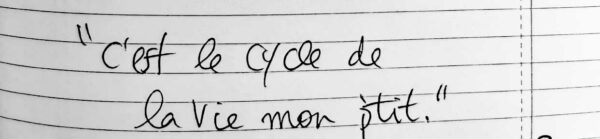 "C'est le cycle de
la vie mon p'tit."